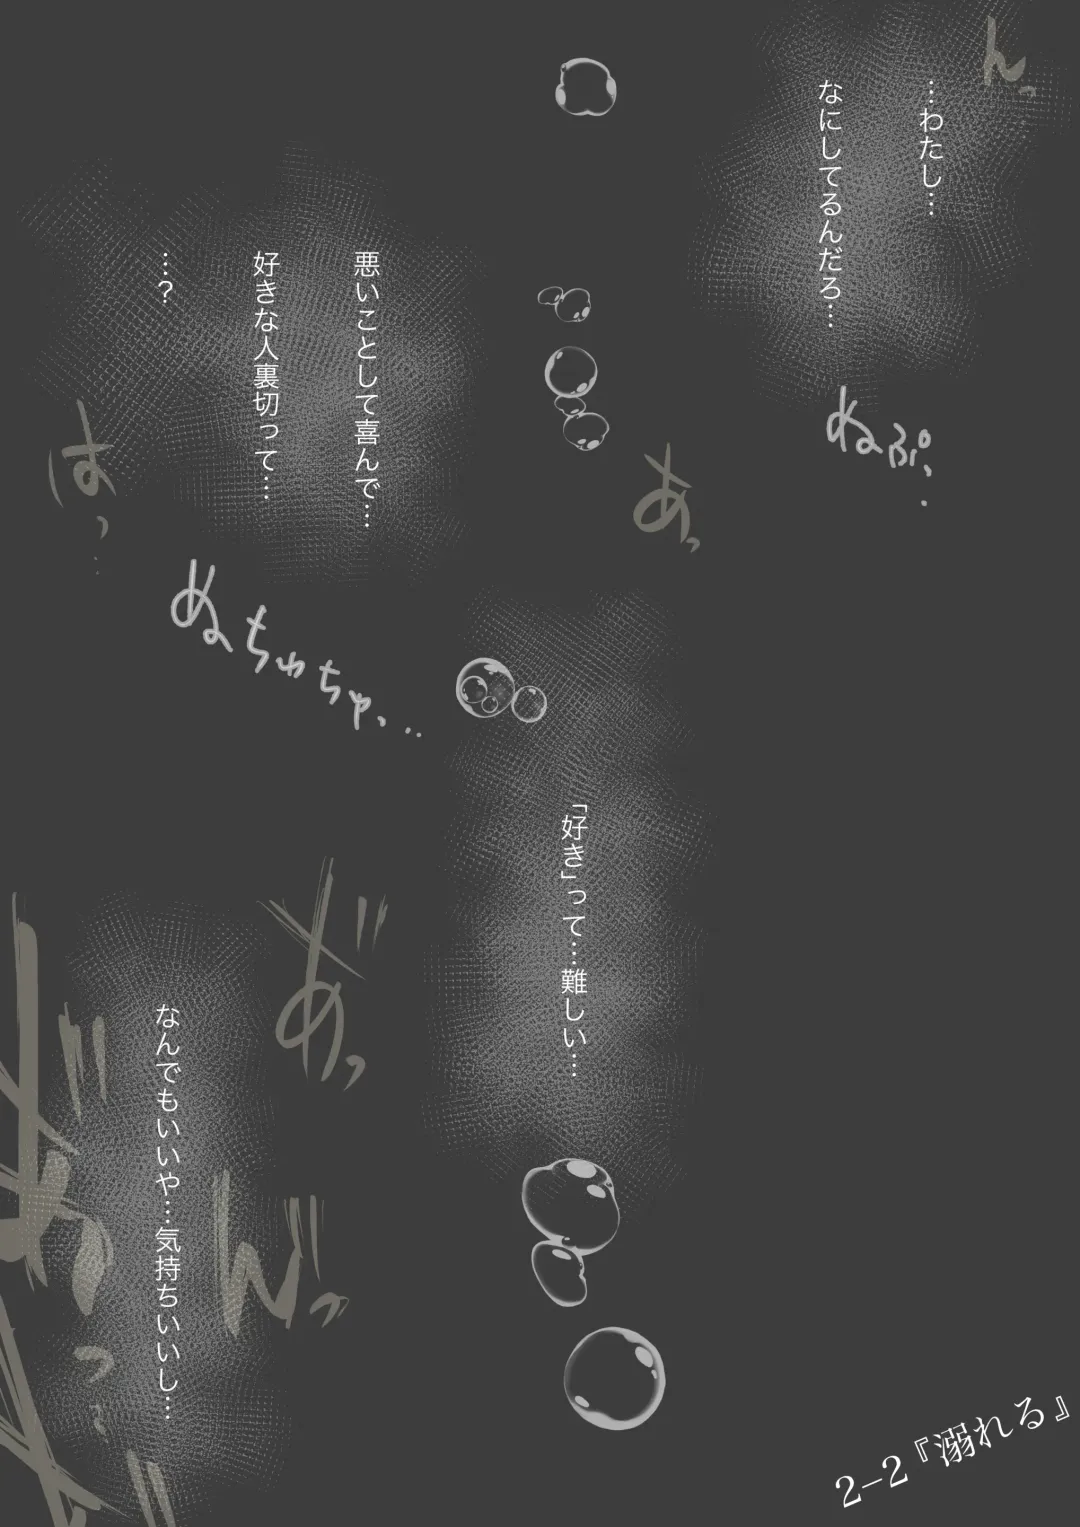 んっ
…わたし…
なにしてるんだろ…
ぬぷっ…
あっ
悪いことして喜んで…
好きな人裏切って…
…?
はっ…
ぬちゅちゃっ…
「好き」って…難しい…
あ゛っ
なんでもいいや…気持ちいいし…
ん゛っ
2–2『溺れる』